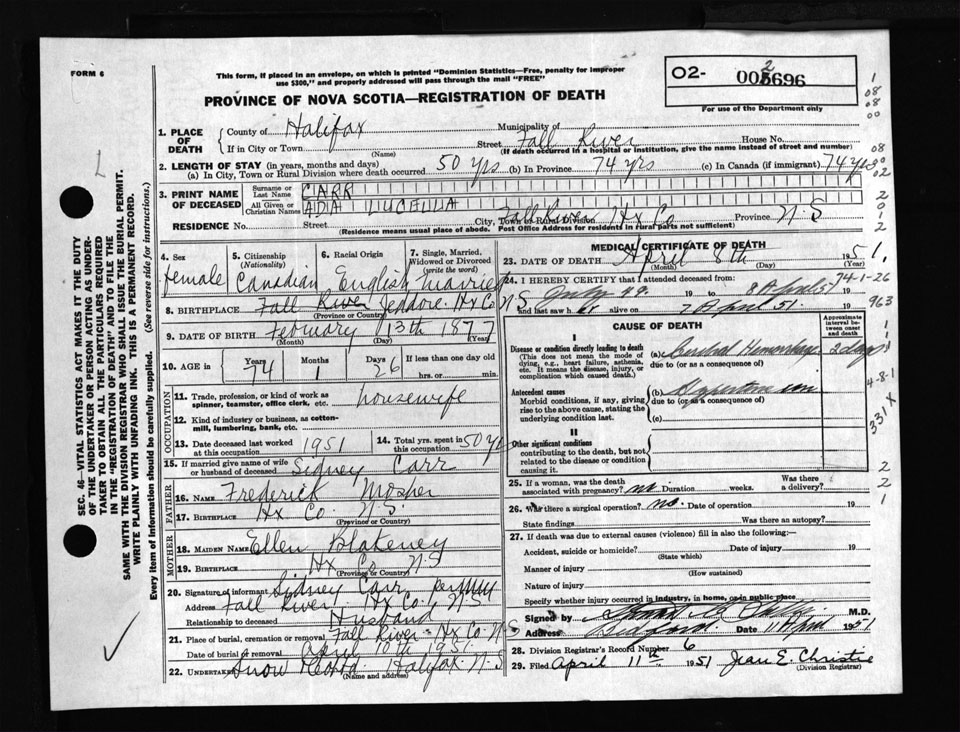 FORM 6
This form, if placed in an envelope, on which is printed "Dominion Statistics—Free, penalty for improper
use $300," and properly addressed will pass through the mail "FREE"
PROVINCE OF NOVA SCOTIA—REGISTRATION OF DEATH
02- 2
696
For use of the Department only
1. PLACE OF DEATH County of Halifax Municipality of
If in City or Town (Name) Street Fall River House No.
(If death occurred in a hospital or institution, give the name instead of street and number)
2. LENGTH OF STAY (in years, months and days)
(a) In City, Town or Rural Division where death occurred 50 yrs (b) In Province 74 yrs (c) In Canada (if immigrant) 74 yrs
3. PRINT NAME OF DECEASED Surname or Last Name CARR
All Given or Christian Names ADA LUCELLA
RESIDENCE No. Street City, Town or Rural Division Fall River Hx Co Province N.S
(Residence means usual place of abode. Post Office Address for residents in rural parts not sufficient)
4. Sex female
5. Citizenship (Nationality) Canadian
6. Racial Origin English
7. Single, Married, Widowed or Divorced (write the word) married
8. BIRTHPLACE Fall River Jeddore Hx Co N S
(Province or Country)
9. DATE OF BIRTH February 13th 1877
(Month) (Day) (Year)
10. AGE in Years 74 Months 1 Days 26 If less than one day old
hrs. or min.
OCCUPATION
11. Trade, profession, or kind of work as spinner, teamster, office clerk, etc. housewife
12. Kind of industry or business, as cotton-mill, lumbering, bank, etc.
13. Date deceased last worked at this occupation 1951
14. Total yrs. spent in this occupation 50 yrs
15. If married give name of wife or husband of deceased Sidney Carr
FATHER
16. NAME Frederick Mosher
17. BIRTHPLACE Hx Co. N.S.
(Province or Country)
MOTHER
18. MAIDEN NAME Ellen Blakeney
19. BIRTHPLACE Hx Co N.S
(Province or Country)
20. Signature of informant Sidney Carr
Address Fall River Hx Co. N.S
Relationship to deceased Husband
21. Place of burial, cremation or removal Fall River - Hx Co. N.S
Date of burial or removal April 10th 1951.
22. Undertaker Snow Halifax N.S
(Name and address)
MEDICAL CERTIFICATE OF DEATH
23. DATE OF DEATH April 8th 1951.
(Month) (Day) (Year)
24. I HEREBY CERTIFY that I attended deceased from:
July 49. 19 to 8 April 51 19
and last saw her alive on 7 April 51. 19
CAUSE OF DEATH
Approximate interval between onset and death
I
Disease or condition directly leading to death
(This does not mean the mode of dying, e.g., heart failure, asthenia, etc. It means the disease, injury, or complication which caused death.)
(a) Cerebral Hemorrhage 2 days
due to (or as a consequence of)
Antecedent causes
Morbid conditions, if any, giving rise to the above cause, stating the underlying condition last.
(b) Hypertension
due to (or as a consequence of)
(c)
II
Other significant conditions
contributing to the death, but not related to the disease or condition causing it.
25. If a woman, was the death associated with pregnancy? no Duration weeks. Was there a delivery?
26. Was there a surgical operation? no. Date of operation 19
State findings Was there an autopsy?
27. If death was due to external causes (violence) fill in also the following:
Accident, suicide or homicide? Date of injury 19
(State which)
Manner of injury
(How sustained)
Nature of injury
Specify whether injury occurred in industry, in home, or in public place
Signed by M.D.
Address Bedford. Date 11 April 1951
28. Division Registrar's Record Number 6
29. Filed April 11th 1951 Jean E. Christie
(Division Registrar)
SEC. 46—VITAL STATISTICS ACT MAKES IT THE DUTY
OF THE UNDERTAKER OR PERSON ACTING AS UNDER-
TAKER TO OBTAIN ALL THE PARTICULARS REQUIRED
IN THE "REGISTRATION OF DEATH" AND TO FILE THE
SAME WITH THE DIVISION REGISTRAR WHO SHALL ISSUE THE BURIAL PERMIT.
WRITE PLAINLY WITH UNFADING INK. THIS IS A PERMANENT RECORD.
Every item of information should be carefully supplied. (See reverse side for instructions.)
74-1-26
963
4-8-1
331X
2
2
1